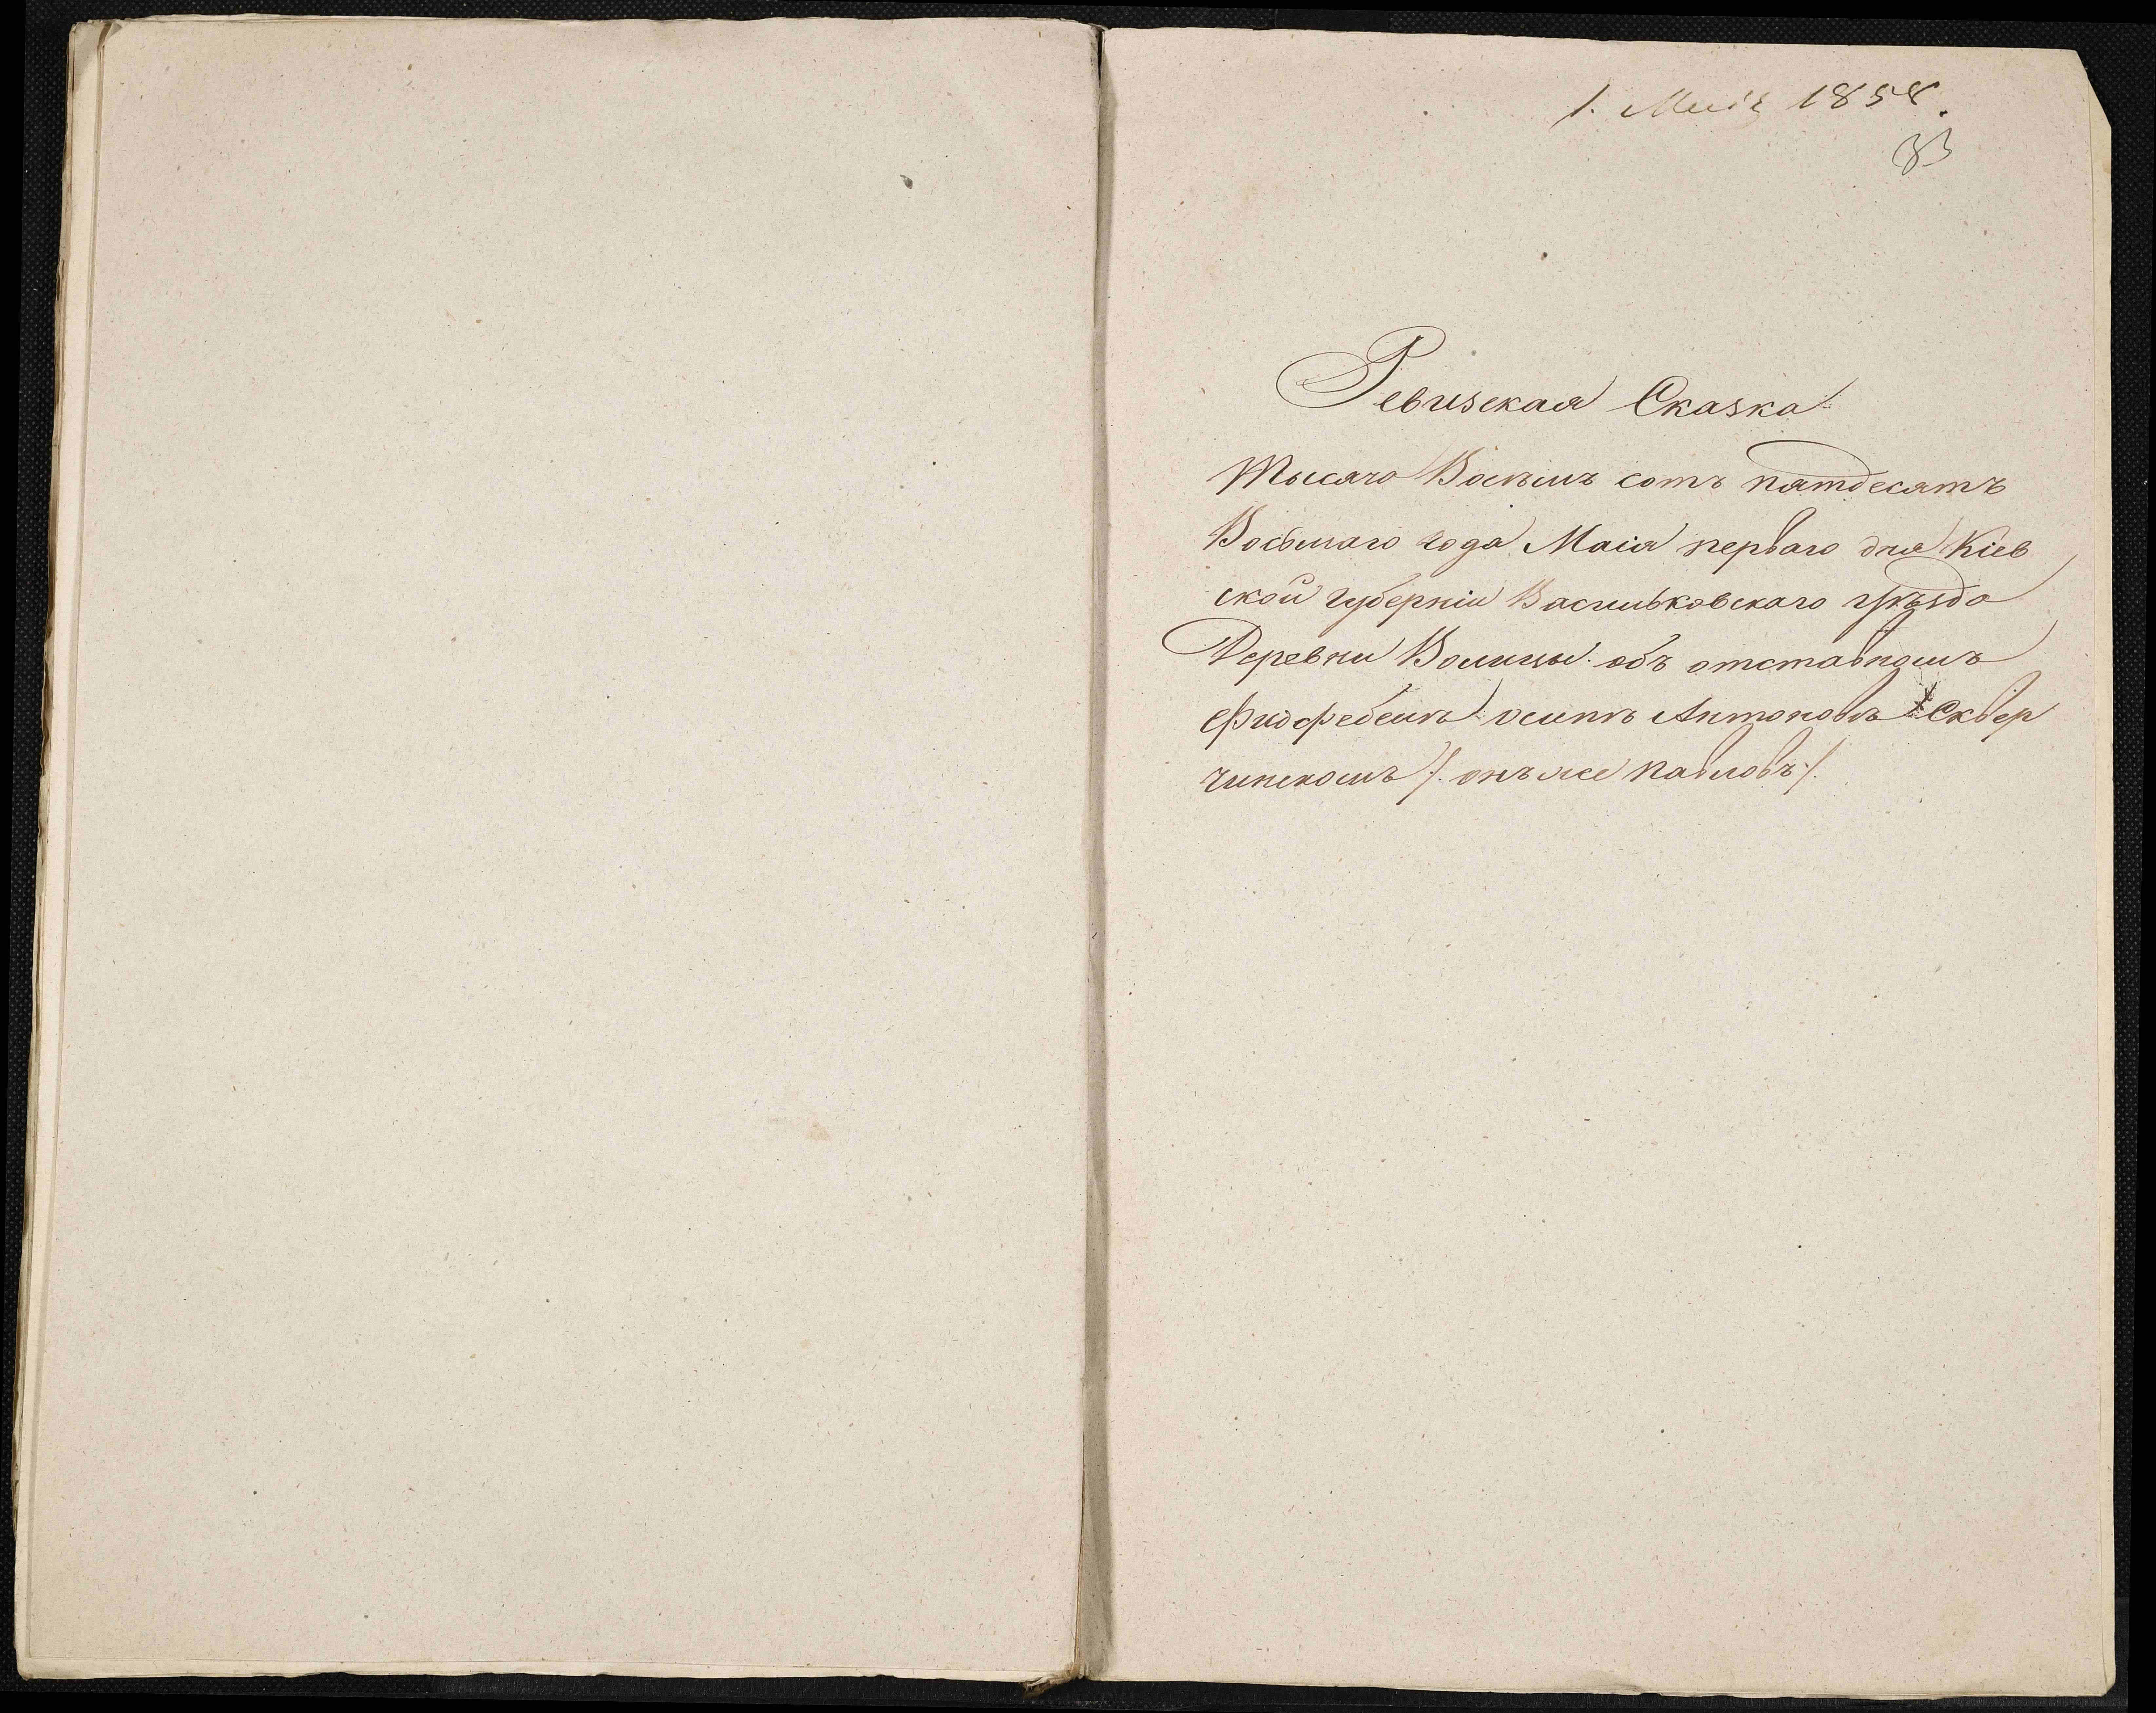 1. Маія 1858.
33
Ревизская Сказка
Тысяча Восѣмъ сотъ пятдесятъ
Восьмаго года Маія перваго дня Кіев
ской губерніи Васильковскаго уѣзда
Деревни Волицы объ отставномъ
осипѣ Антоновѣ Сквер
чинскомъ /: онъ же Павловъ :/